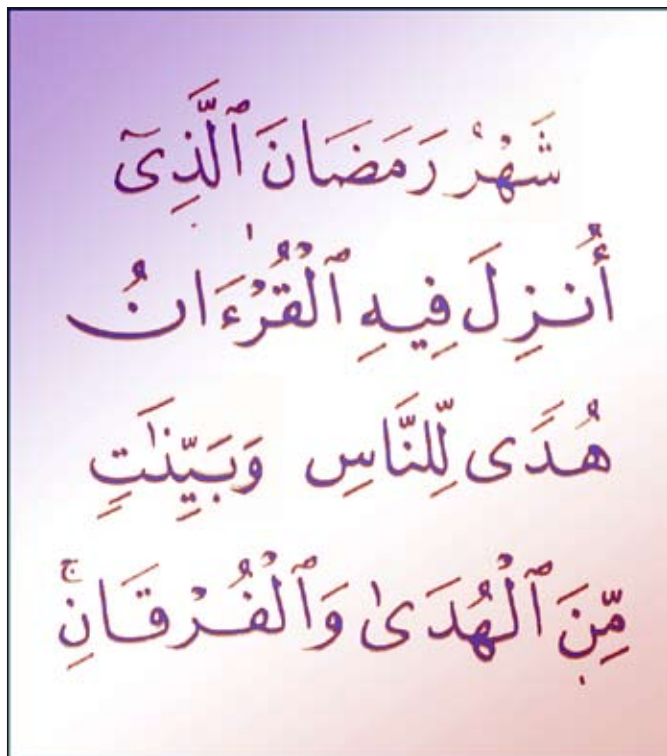 شَهْرُ رَمَضَانَ ٱلَّذِىٓ
أُنزِلَ فِيهِ ٱلْقُرْءَانُ
هُدًى لِّلنَّاسِ وَبَيِّنَٰتٍ
مِّنَ ٱلْهُدَىٰ وَٱلْفُرْقَانِ ۚ